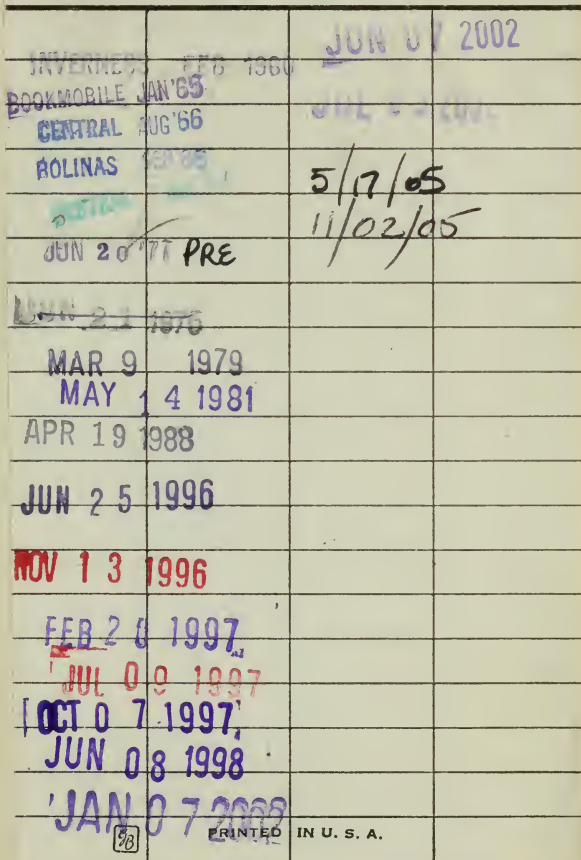 INVERNESS FEB 1966
BOOKMOBILE JAN'65
CENTRAL AUG'66
BOLINAS
JUN 20 '77 PRE
JUN 21 1976
MAR 9 1979
MAY 14 1981
APR 19 1988
JUN 25 1996
NOV 13 1996
FEB 20 1997
JUL 09 1997
OCT 07 1997
JUN 08 1998
JAN 07
PRINTED IN U. S. A.
JUN 07 2002
JUL
5/17/05
11/02/05